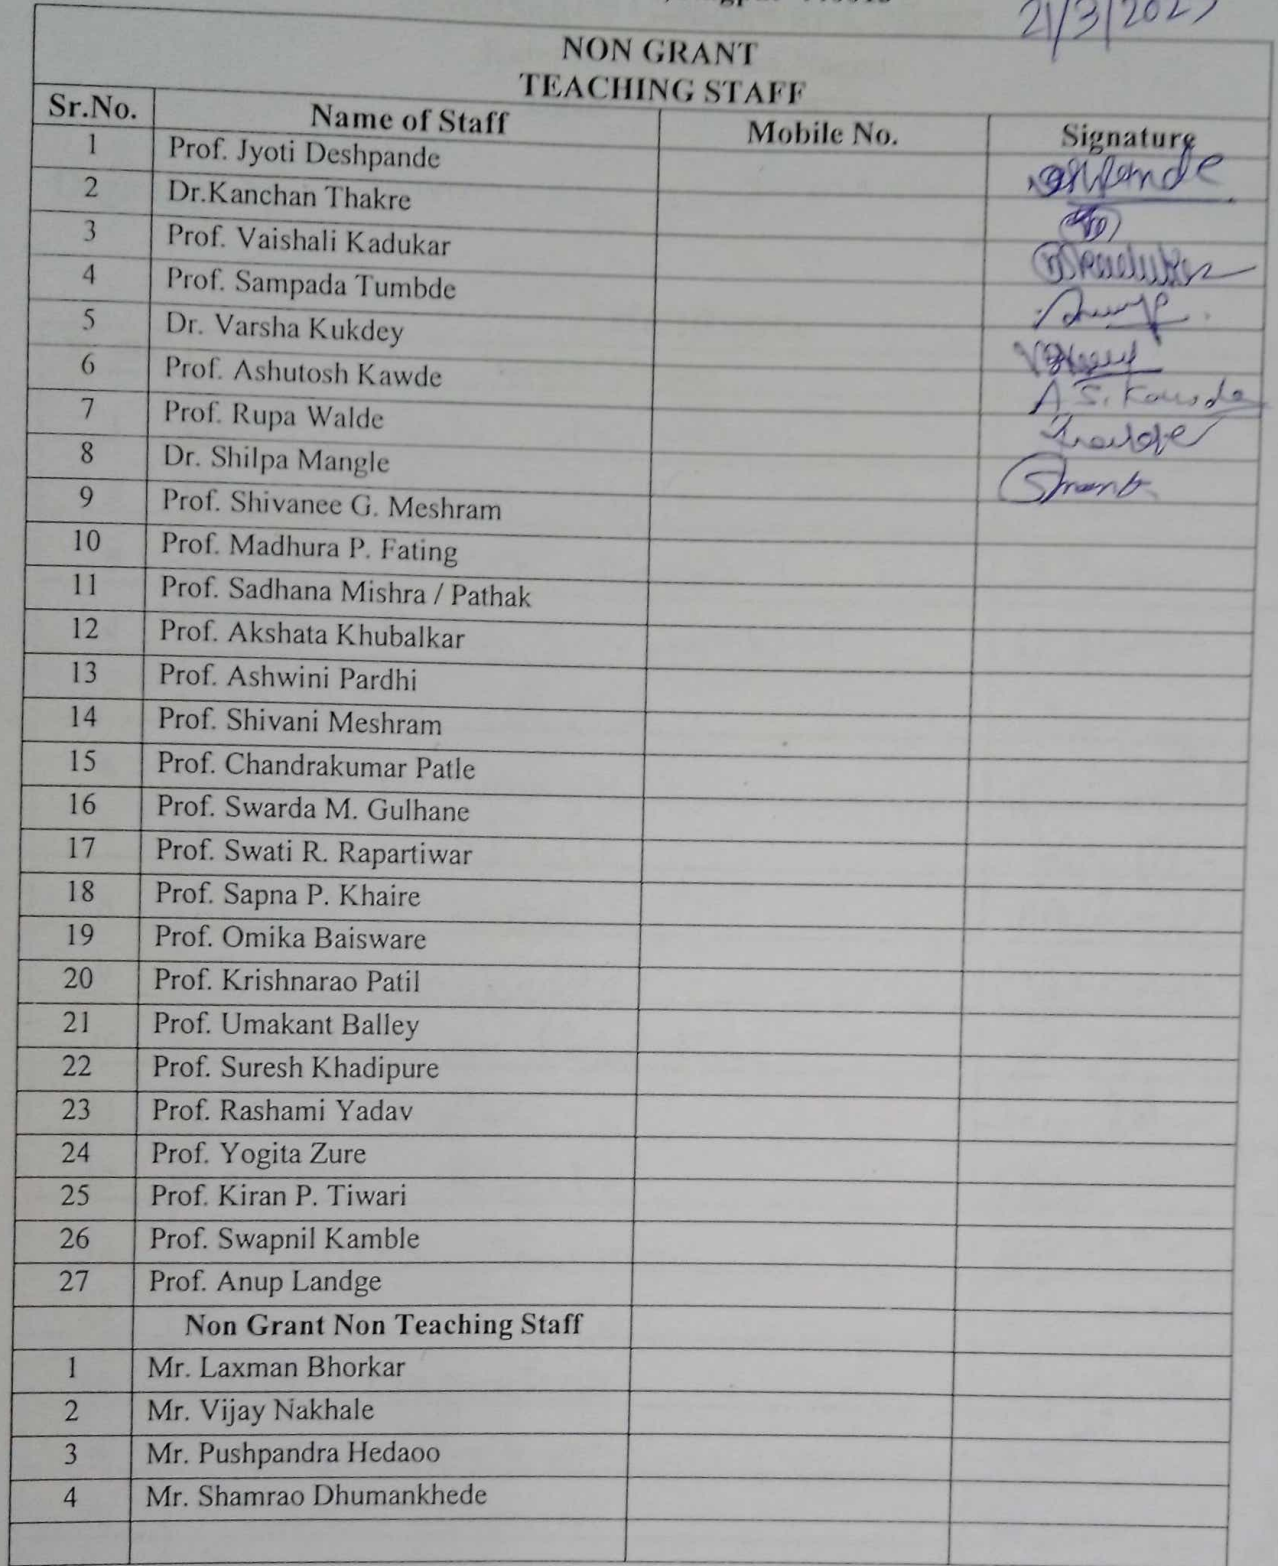 21/3/202
NON GRANT
TEACHING STAFF
Sr.No. Name of Staff Mobile No. Signature
1 Prof. Jyoti Deshpande
2 Dr.Kanchan Thakre
3 Prof. Vaishali Kadukar
4 Prof. Sampada Tumbde
5 Dr. Varsha Kukdey
6 Prof. Ashutosh Kawde A. S. Kawde
7 Prof. Rupa Walde
8 Dr. Shilpa Mangle
9 Prof. Shivanee G. Meshram
10 Prof. Madhura P. Fating
11 Prof. Sadhana Mishra / Pathak
12 Prof. Akshata Khubalkar
13 Prof. Ashwini Pardhi
14 Prof. Shivani Meshram
15 Prof. Chandrakumar Patle
16 Prof. Swarda M. Gulhane
17 Prof. Swati R. Rapartiwar
18 Prof. Sapna P. Khaire
19 Prof. Omika Baisware
20 Prof. Krishnarao Patil
21 Prof. Umakant Balley
22 Prof. Suresh Khadipure
23 Prof. Rashami Yadav
24 Prof. Yogita Zure
25 Prof. Kiran P. Tiwari
26 Prof. Swapnil Kamble
27 Prof. Anup Landge
Non Grant Non Teaching Staff
1 Mr. Laxman Bhorkar
2 Mr. Vijay Nakhale
3 Mr. Pushpandra Hedaoo
4 Mr. Shamrao Dhumankhede